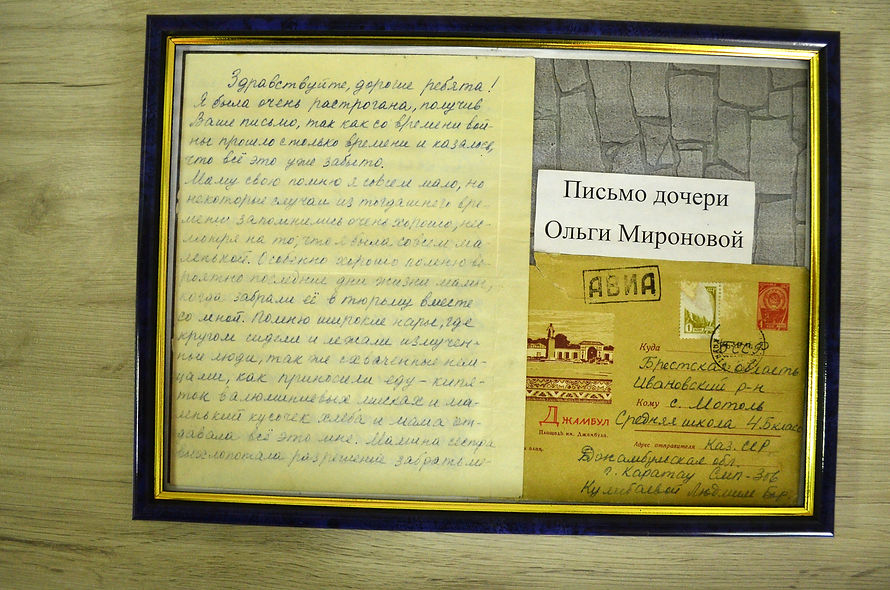 Здравствуйте, дорогие ребята!
Я была очень растрогана, получив
Ваше письмо, так как со времени вой-
ны прошло столько времени и казалось,
что всё это уже забыто.
Маму свою помню я совсем мало, но
некоторые случаи из тогдашнего вре-
мени запомнились очень хорошо, нес-
мотря на то, что я была совсем ма-
ленькой. Особенно хорошо помню ве-
роятно последние дни жизни мамы,
когда забрали её в тюрьму вместе
со мной. Помню широкие нары, где
кругом сидели и лежали измучен-
ные люди, так же схваченные нем-
цами, как приносили еду - кипя-
ток в алюминиевых мисках и ма-
ленький кусочек хлеба и мама от-
давала всё это мне. Мамина сестра
выхлопотала разрешение забрать
Письмо дочери
Ольги Мироновой
АВИА
Куда
Брестская область
Ивановский р-н
Кому с. Мотоль
Средняя школа 4 Б класс
ДЖАМБУЛ
Площадь им. Джамбула.
Адрес отправителя Каз. ССР
Джамбулская обл.
г. Каратау
Людмиле